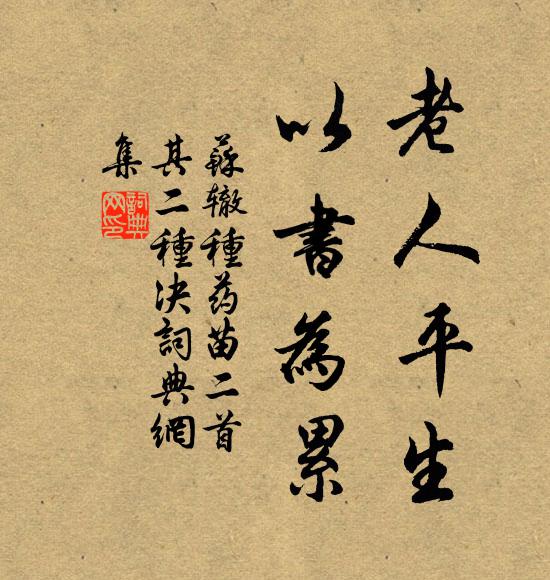 老人平生
以書為累
蘇辙種药苗二首
其二種决詞典網
集
詞典網印